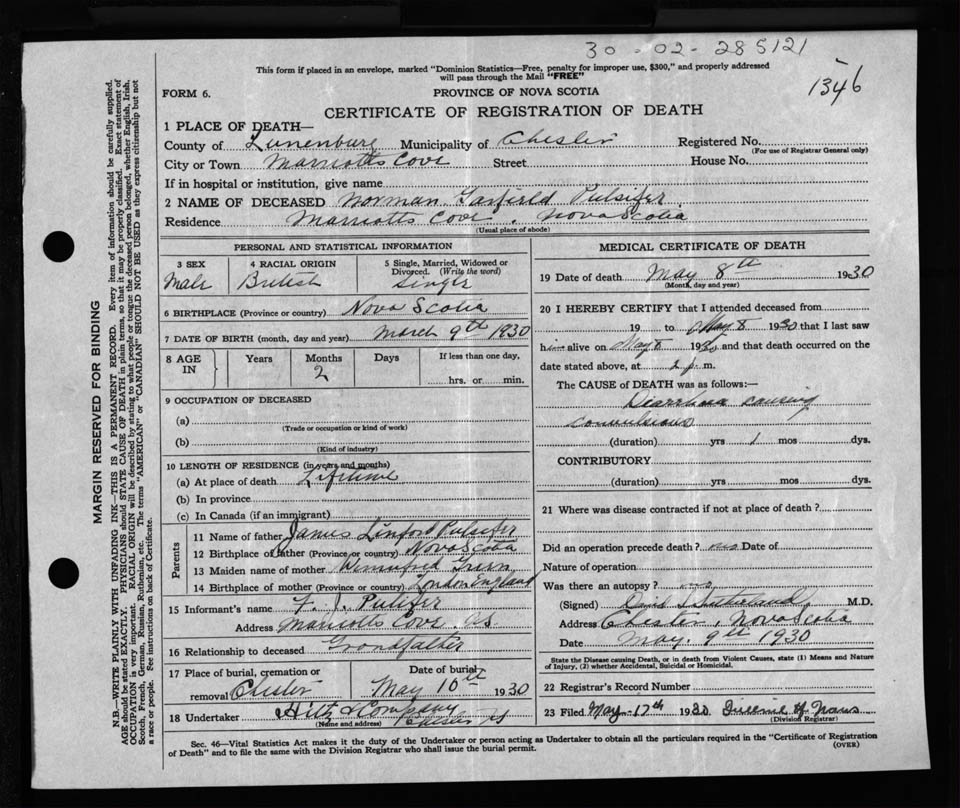 30-02-285121
1346
This form if placed in an envelope, marked "Dominion Statistics—Free, penalty for improper use, $300," and properly addressed
will pass through the Mail "FREE"
FORM 6.
PROVINCE OF NOVA SCOTIA
CERTIFICATE OF REGISTRATION OF DEATH
1 PLACE OF DEATH—
County of Lunenburg Municipality of Chester Registered No.
(For use of Registrar General only)
City or Town Marriotts Cove Street House No.
If in hospital or institution, give name
2 NAME OF DECEASED Norman Garfield Pulsifer
Residence Marriotts Cove, Nova Scotia
(Usual place of abode)
PERSONAL AND STATISTICAL INFORMATION
3 SEX
Male
4 RACIAL ORIGIN
British
5 Single, Married, Widowed or
Divorced. (Write the word)
Single
6 BIRTHPLACE (Province or country) Nova Scotia
7 DATE OF BIRTH (month, day and year) March 9th 1930
8 AGE IN
Years Months Days If less than one day,
2
hrs. or min.
9 OCCUPATION OF DECEASED
(a)
(Trade or occupation or kind of work)
(b)
(Kind of industry)
10 LENGTH OF RESIDENCE (in years and months)
(a) At place of death Lifetime
(b) In province
(c) In Canada (if an immigrant)
Parents
11 Name of father James Linford Pulsifer
12 Birthplace of father (Province or country) Nova Scotia
13 Maiden name of mother Winnifred Green
14 Birthplace of mother (Province or country) London England
15 Informant's name F. J. Pulifer
Address Marriotts Cove N.S.
16 Relationship to deceased Grandfather
17 Place of burial, cremation or
removal Chester
Date of burial
May 10th 1930
18 Undertaker Hiltz & Company
(Name and address) Chester N.S.
MEDICAL CERTIFICATE OF DEATH
19 Date of death May 8th 1930
(Month, day and year)
20 I HEREBY CERTIFY that I attended deceased from
19 to May 8 1930 that I last saw
him alive on May 8 1930 and that death occurred on the
date stated above, at 2 p. m.
The CAUSE of DEATH was as follows:—
Diarrhoea causing
convulsions
(duration) yrs 1 mos dys.
CONTRIBUTORY
(duration) yrs mos dys.
21 Where was disease contracted if not at place of death?
Did an operation precede death? no Date of
Nature of operation
Was there an autopsy? no
(Signed) M.D.
Address Chester, Nova Scotia
Date May. 9th 1930
State the Disease causing Death, or in death from Violent Causes, state (1) Means and Nature
of Injury, (2) whether Accidental, Suicidal or Homicidal.
22 Registrar's Record Number
23 Filed May 17th 1930
(Division Registrar)
Sec. 46—Vital Statistics Act makes it the duty of the Undertaker or person acting as Undertaker to obtain all the particulars required in the "Certificate of Registration
of Death" and to file the same with the Division Registrar who shall issue the burial permit.
(OVER)
MARGIN RESERVED FOR BINDING
N.B.—WRITE PLAINLY WITH UNFADING INK—THIS IS A PERMANENT RECORD. Every item of information should be carefully supplied.
AGE should be stated EXACTLY. PHYSICIANS should STATE CAUSE OF DEATH in plain terms, so that it may be properly classified. Exact statement of
OCCUPATION is very important. RACIAL ORIGIN will be described by stating to what people or tongue the deceased person belonged, whether English, Irish,
Scotch, French, German, Russian, Ruthenian, etc. The terms "AMERICAN" or "CANADIAN" SHOULD NOT BE USED as they express citizenship but not
a race or people. See instructions on back of Certificate.